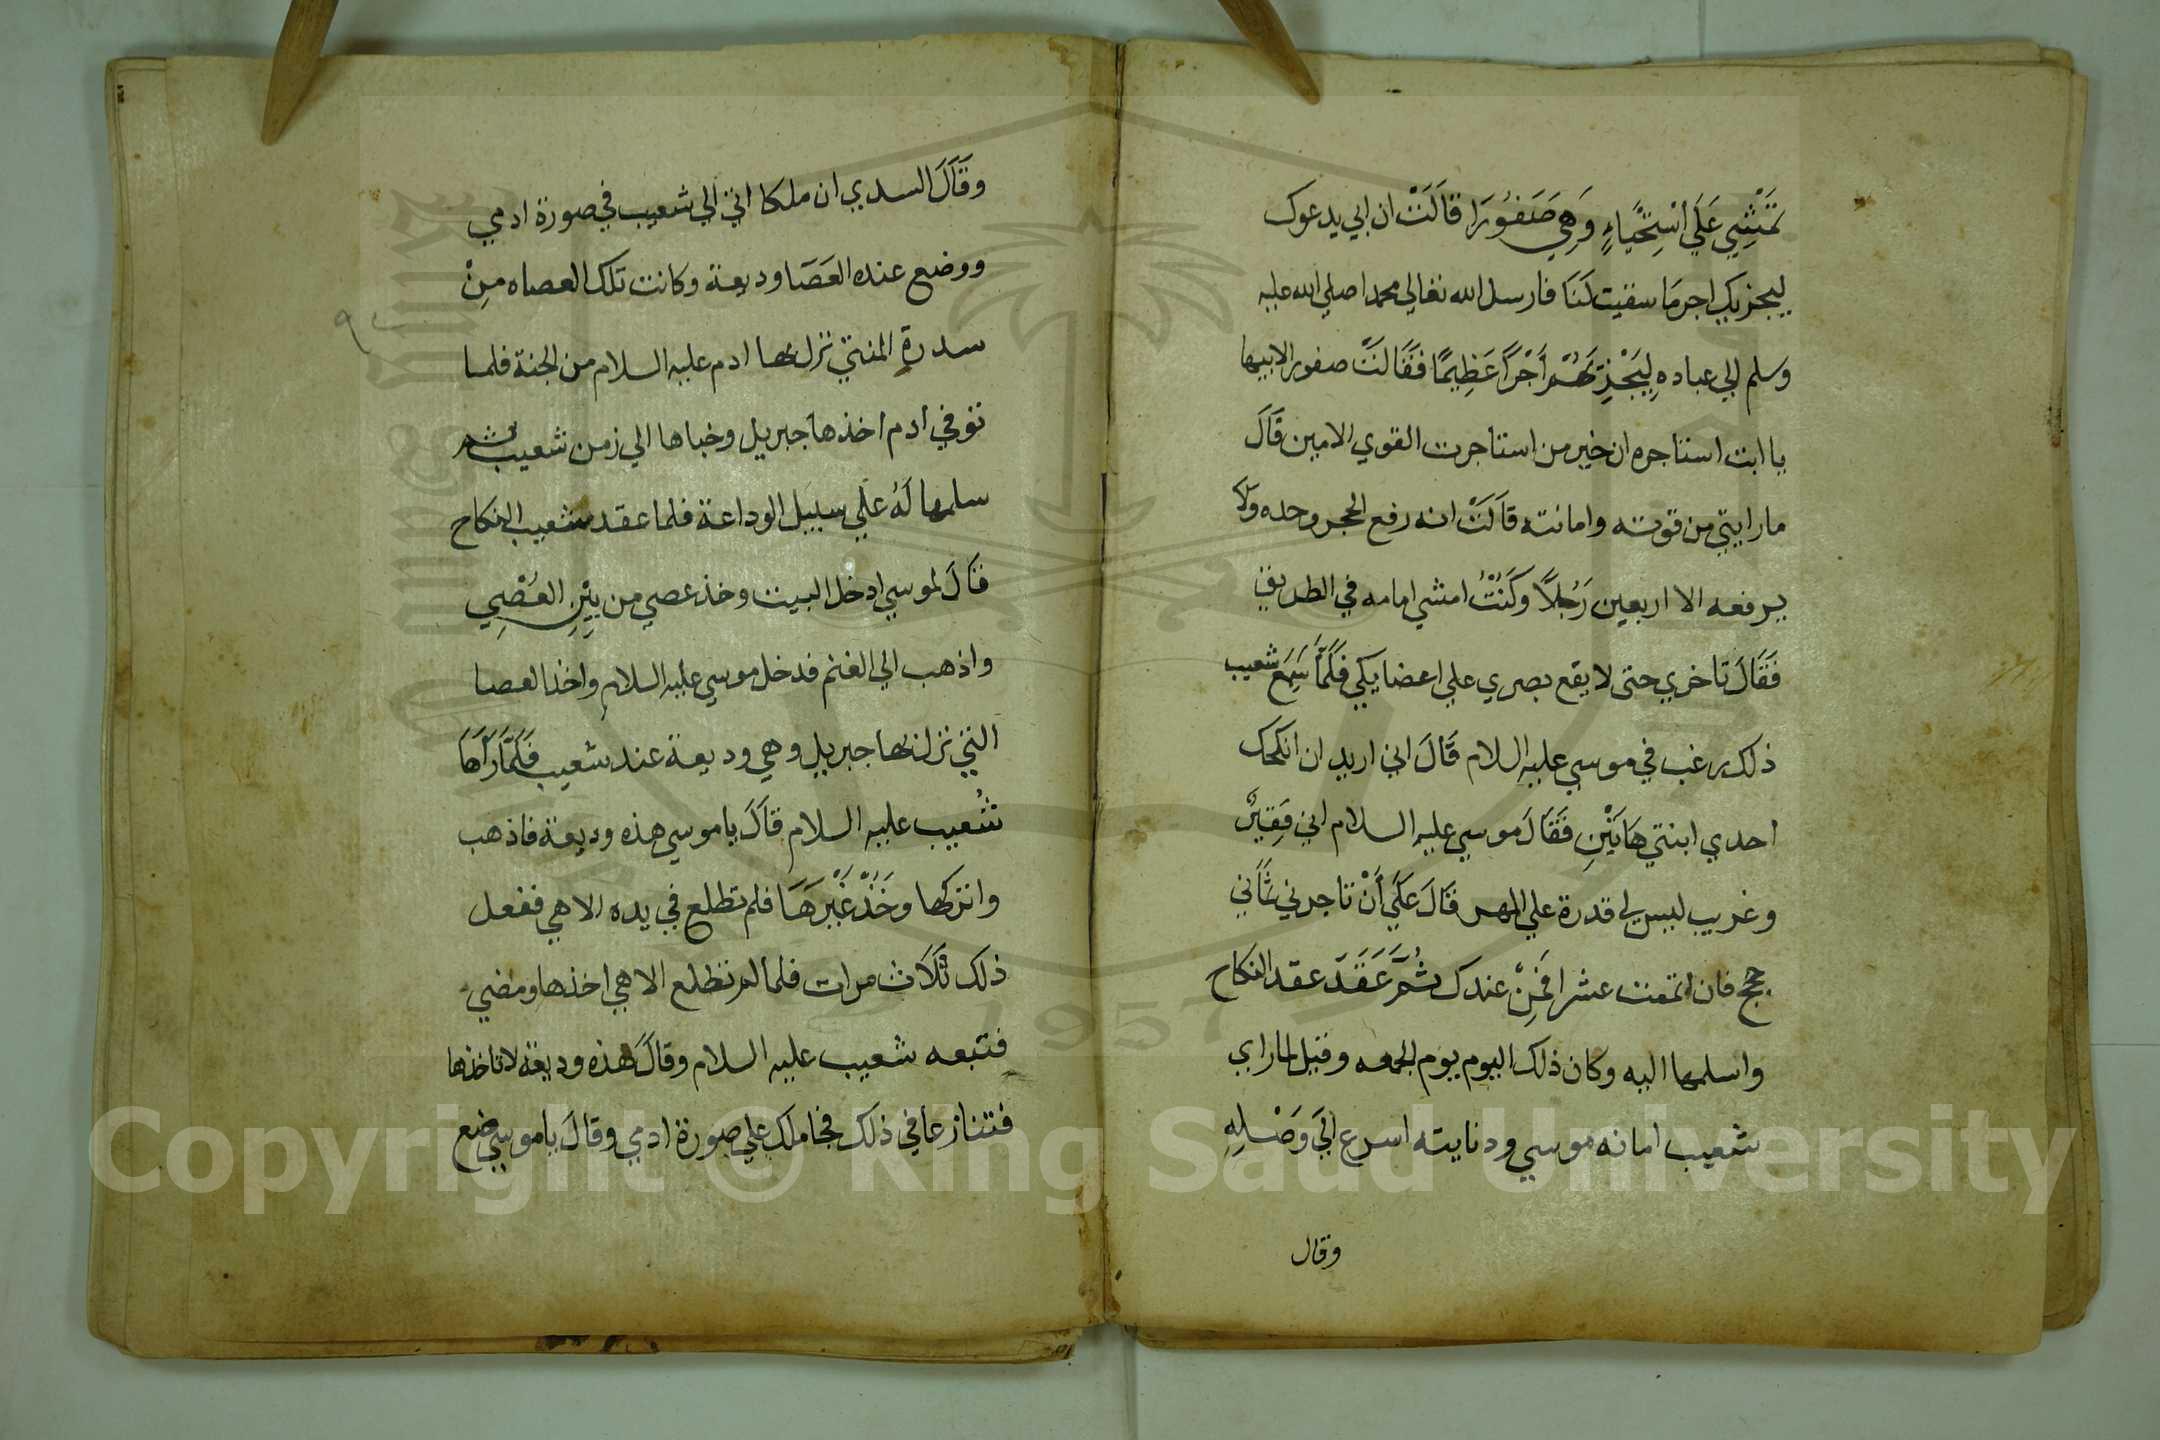 تَمْشِي عَلَي اسْتِحْيَاءٍ وَهِي صَفُورَا قَالَتْ ان ابي يدعوك
ليجزيك اجرمَا سقيت لَنَا فارسل الله تعالي محمدا صلي الله عليه
وسلم الي عباده لِيَجْزِيَهُمْ أَجْرًا عَظِيمًا فَقَالَتْ صفورا لابيها
يا ابت استاجره ان خير من استاجرت القوي الامين قَالَ
ما رايتي من قوته وامانته قَالَتْ انه رفع الحجر وحده ولا
يرفعه الا اربعين رَجُلاً وكَنْتُ امشي امامه في الطريق
فَقَالَ تاخري حتي لا يقع بصري علي اعضايكي فَلَمَّا سَمِعَ شعيب
ذلك رغب في موسي عليه السلام قَالَ اني اريد ان انكحك
احدي ابنتي هَاتَيْنِ فَقَالَ موسي عليه السلام اني فَقِيرٌ
وغريب ليس لي قدرة علي المهر قَالَ عَلَي أَنْ تاجرني ثَمَانِي
حجج فان اتممت عشرا فَمِنْ عندك ثُمَّ عَقَدَ عقد النكاح
واسلمها اليه وكان ذلك اليوم يوم الجمعه وقيل لما راي
شعيب امانه موسي وديانته اسرع الَي وَصْلِهِ
وقال
وقَالَ السدي ان ملكا اتي الي شعيب في صورة ادمي
ووضع عنده العَصَا وديعة وكانت تلك العصاه مِنْ
سدرةِ المنتهي نزل بها ادم عليه السلام من الجنة فلما
توفي ادم اخذها جبريل وخباها الي زمن شعيب ثم
سلمها لَهُ علَي سبيل الوداعة فلما عقد شعيب النكاح
قَالَ لموسي ادخل البيت وخذ عصي من بَيْنِ العُصِي
واذهب الي الغنم فدخل موسي عليه السلام واخذ العصا
التي نزل بها جبريل وهي وديعة عند شعيب فَلَمَّا رَآهَا
شُعيب عليه السلام قَالَ يا موسي هذه وديعة فاذهب
واتركها وخَذْ غَيْرَهَا فلم تطلع في يده الا هي ففعل
ذلك ثَلَاث مرات فلما لم تطلع الا هي اخذها ومضي
فتبعه شعيب عليه السلام وقالَ هذه وديعة لا تاخذها
فتنازعا في ذلك فجا ملك علي صورة ادمي وقالَ يا موسي ضع
Copyright © King Saud University
1957